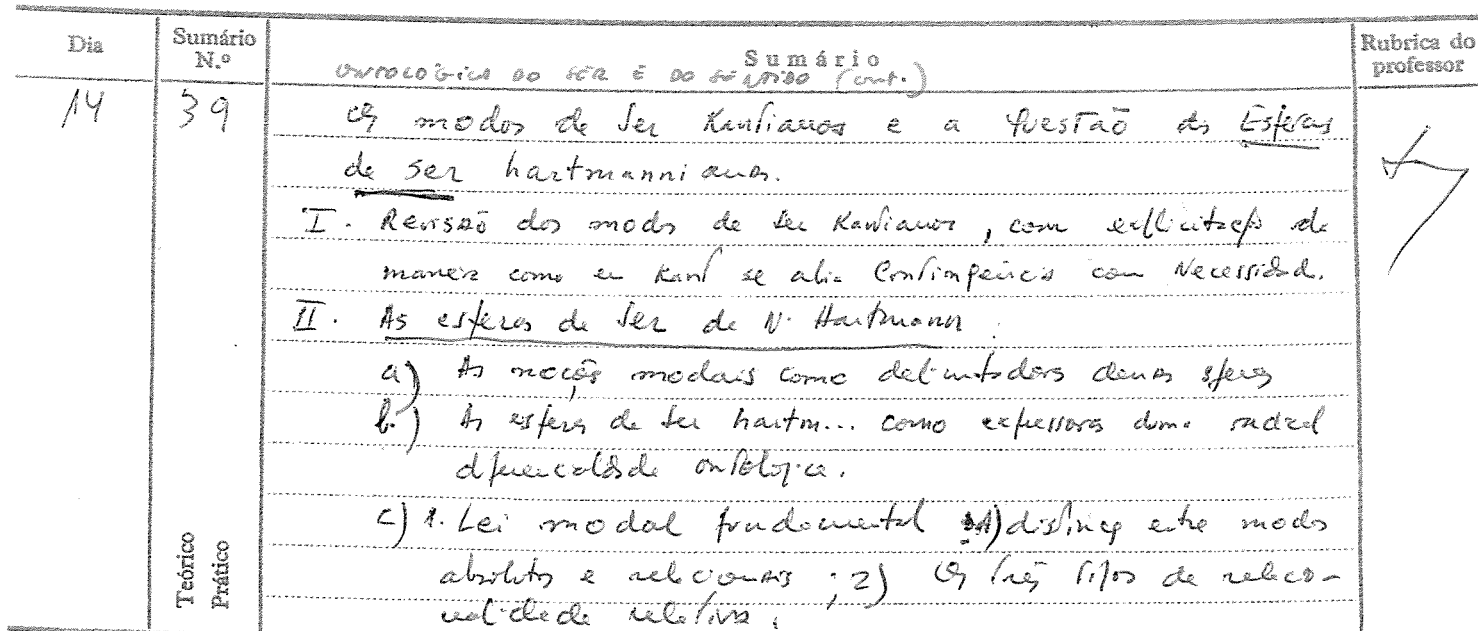 Dia
Sumário N.º
Sumário
Rubrica do professor
ONTOLÓGICA DO SER E DO SENTIDO (cont.)
14 39
Os modos de ser Kantianos e a questão das Esferas
de ser hartmannianas.
I. Revisão dos modos de ser Kantianos, com explicitação da
maneira como em Kant se alia Contingência com Necessidade.
II. As esferas de ser de N. Hartmann.
a) As noções modais como delimitadoras dessas esferas
b) As esferas de ser hartm... como expressoras duma radical
diferencialidade ontológica.
c) 1. Lei modal fundamental 1) distinção entre modos
absolutos e relacionais; 2) Os três tipos de relacio-
nalidade relativa.
Teórico
Prático